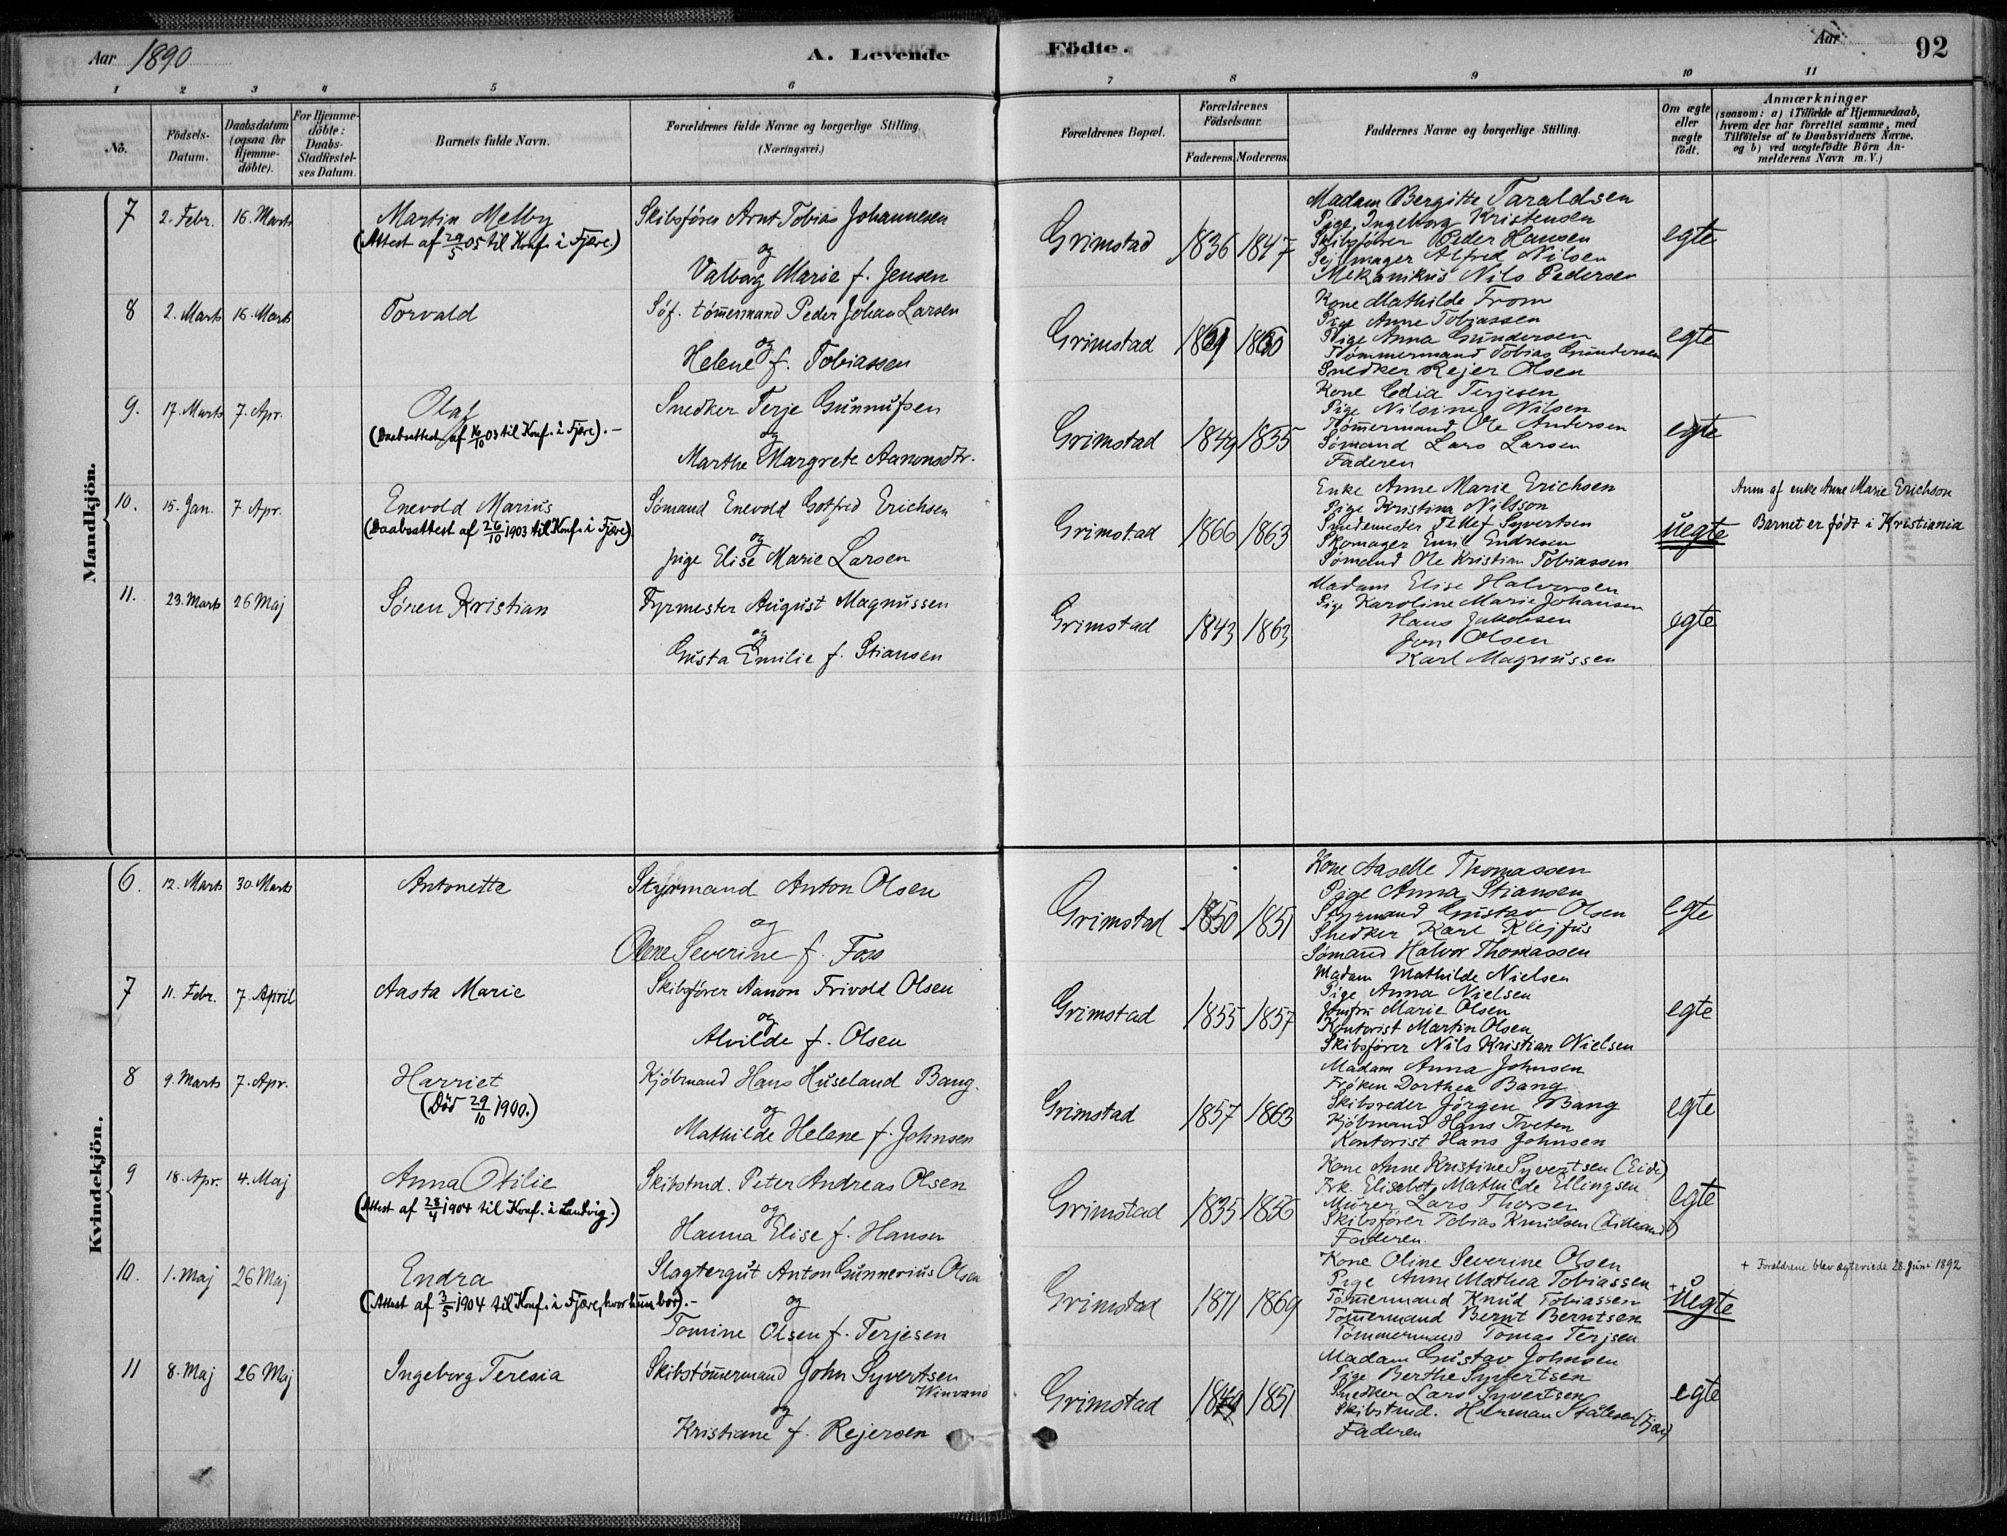 Aar 1890
A. Levende
Födte.
Aar
92
1 2 3 4 5 6 7 8 9 10 11
No.
Födsels-Datum.
Daabsdatum (ogsaa for Hjemmedöbte).
For Hjemmedöbte: Daabs-Stadfæstelses Datum.
Barnets fulde Navn.
Forældrenes fulde Navne og borgerlige Stilling.
(Næringsvei.)
Forældrenes Bopæl.
Forældrenes Födselsaar.
Faderens. Moderens.
Faddernes Navne og borgerlige Stilling.
Om ægte eller uægte født.
Anmærkninger
(saasom: a) i Tilfælde af Hjemmedaab, hvem der har forrettet samme, med Tilföielse af to Daabsvidners Navne. og b) ved uægtefödte Börn Anmelderens Navn m. V.)
Mandkjön.
7 2. Febr. 16. Marts Martin Melby
(Attest af 29/5 05 til Konf. i Fjære)
Skibsfører Arnt Tobias Johannesen
og
Valborg Marie f. Jensen
Grimstad 1836 1847
Madam Bergitte Taraldsen
Pige Ingeborg Kristensen
Skibsfører Peder Hansen
Sejlmager Alfred Nilsen
Mekanikus Nils Pedersen
egte
8 2. Marts 16. Marts Torvald
Söf. tömmermand Peder Johan Larsen
og
Helene f. Tobiassen
Grimstad
Kone Mathilde From
Pige Anne Tobiassen
Pige Anna Gundersen
Tømmermand Tobias Gundersen
Snedker Rejer Olsen
egte
9. 17. Marts 7. Apr. Olaf
(Daabsattest af 16/10 03 til Konf. i Fjære).-
Snedker Terje Gunnufsen
og
Marthe Margrete Aanonsdtr.
Grimstad 1849 1855
Kone Edia Terjesen
Pige Nilsine Nilsen
Tømmermand Ole Andersen
Sømand Lars Larsen
Faderen
egte
10. 15. Jan. 7 Apr. Enevold Marius
(Daabsattest af 26/10 1903 til Konf. i Fjære)
Sømand Enevold Gotfred Erichsen
og
pige Elise Marie Larsen
Grimstad 1866 1863
Enke Anne Marie Erichsen
Pige Kristina Nilsson
Smedemester Detlef Syvertsen
Skomager Emil Endresen
Sømand Ole Kristian Tobiassen
uegte
Anm af enke Anne Marie Erichson
Barnet er født i Kristiania
11. 23. Marts 26 Maj Sören Kristian
Fyrmester August Magnussen
og
Gusta Emilie f. Stiansen
Grimstad 1843 1863
Madam Elise Halvorsen
Pige Karoline Marie Johansen
Hans Jakobsen
Jon Olsen
Karl Magnussen
egte
Kvindekjön.
6. 12. Marts 30. Marts Antonette
Styrmand Anton Olsen
og
Olene Severine f. Foss
Grimstad 1850 1851
Kone Aaselle Thomassen
Pige Anna Stiansen
Styrmand Gustav Olsen
Snedker Karl Klejfus
Sømand Halvor Thomassen
egte
7 11. Febr. 7. April Aasta Marie
Skibsfører Aanon Frivold Olsen
og
Alvilde f. Olsen
Grimstad 1855 1857
Madam Mathilde Nielsen
Pige Anna Nielsen
Jomfru Marie Olsen
Kontorist Martin Olsen
Skibsfører Nils Kristian Nielsen
egte
8 9. Marts 7. Apr. Harriet
(Död 29/10 1900.)
Kjöbmand Hans Huseland Bang.
og
Mathilde Helene f. Johnsen
Grimstad 1857 1863
Madam Anna Johnsen
Frøken Dorthea Bang
Skibsreder Jörgen Bang
Kjöbmand Hans Tveten
Kontorist Hans Johnsen
egte
9 18. Apr. 4. Maj Anna Otilie
(Attest af 28/4 1904 til Konf. i Landvig.)
Skibstmd. Peter Andreas Olsen
og
Hanna Elise f. Hansen
Grimstad 1835 1856
Kone Anne Kristine Syvertsen (Eide)
Frk. Elisabet Mathilde Ellingsen
Murer Lars Thorsen
Skibsfører Tobias Knudsen (Lillesand)
Faderen
egte
10. 1. Maj 26 Maj Endra
(Attest af 3/5 1904 til Konf. i Fjære, hvor hun bor).-
Slagtergut Anton Gunnerius Olsen
og
Tomine Olsen f. Terjesen
Grimstad 1871 1869
Kone Oline Severine Olsen
Pige Anne Mathea Tobiassen
Tömmermand Knud Tobiassen
Tömmermand Bernt Berntsen
Tömmermand Tomas Terjsen
+ uegte
+ Forældrene blev ægteviede 28. Juni 1892
11 8. Maj 26 Maj Ingeborg Teresia
Skibstömmermand John Syvertsen
og
Kristiane f. Rejersen
Grimstad 1851
Madam Gustav Johnsen
Pige Berthe Syvertsen
Snedker Lars Syvertsen
Skibstmd. Herman Stålesen (Fjære)
Faderen
egte